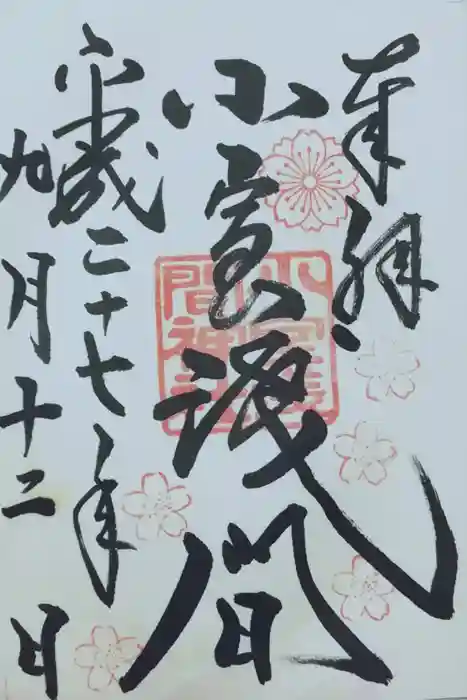 奉拝
小室浅間
小室浅間神社
平成二十七年
九月十二日